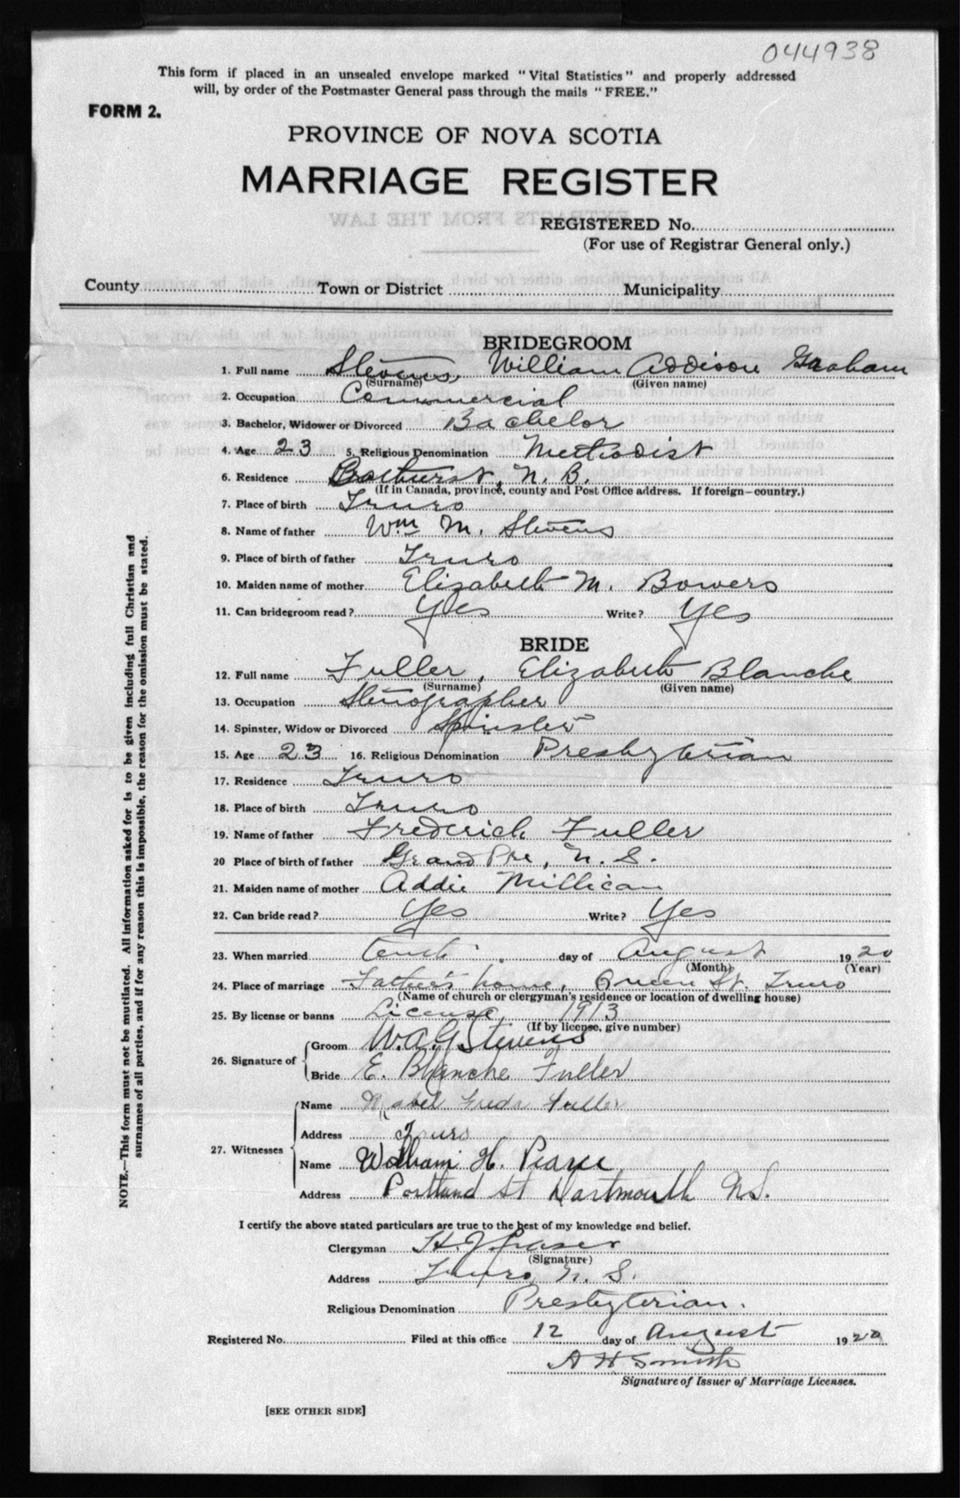 044938
This form if placed in an unsealed envelope marked "Vital Statistics" and properly addressed
will, by order of the Postmaster General pass through the mails "FREE."
FORM 2.
PROVINCE OF NOVA SCOTIA
MARRIAGE REGISTER
EXTRACTS FROM THE LAW
REGISTERED No.
(For use of Registrar General only.)
County Town or District Municipality
BRIDEGROOM
1. Full name Stevens, William Addison Graham
(Surname) (Given name)
2. Occupation Commercial
3. Bachelor, Widower or Divorced Bachelor
4. Age 23 5. Religious Denomination Methodist
6. Residence Bathurst, N. B.
(If in Canada, province, county and Post Office address. If foreign—country.)
7. Place of birth Truro
8. Name of father Wm M. Stevens
9. Place of birth of father Truro
10. Maiden name of mother Elizabeth M. Bowers
11. Can bridegroom read? Yes Write? Yes
BRIDE
12. Full name Fuller, Elizabeth Blanche
(Surname) (Given name)
13. Occupation Stenographer
14. Spinster, Widow or Divorced Spinster
15. Age 23 16. Religious Denomination Presbyterian
17. Residence Truro
18. Place of birth Truro
19. Name of father Frederick Fuller
20 Place of birth of father Grand Pre, N. S.
21. Maiden name of mother Addie Millican
22. Can bride read? Yes Write? Yes
23. When married tenth day of August 1920
(Month) (Year)
24. Place of marriage Father's home, Queen St. Truro
(Name of church or clergyman's residence or location of dwelling house)
25. By license or banns License 1913
(If by license, give number)
26. Signature of
Groom W.A.G Stevens
Bride E. Blanche Fuller
27. Witnesses
Name Mabel Freda Fuller
Address Truro
Name William H. Pearce
Address Portland St Dartmouth N.S.
I certify the above stated particulars are true to the best of my knowledge and belief.
Clergyman H J Fraser
(Signature)
Address Truro, N. S.
Religious Denomination Presbyterian.
Registered No. Filed at this office 12 day of August 1920
A H Smith
Signature of Issuer of Marriage Licenses.
[SEE OTHER SIDE]
NOTE.—This form must not be mutilated. All information asked for is to be given including full Christian and
surnames of all parties, and if for any reason this is impossible, the reason for the omission must be stated.